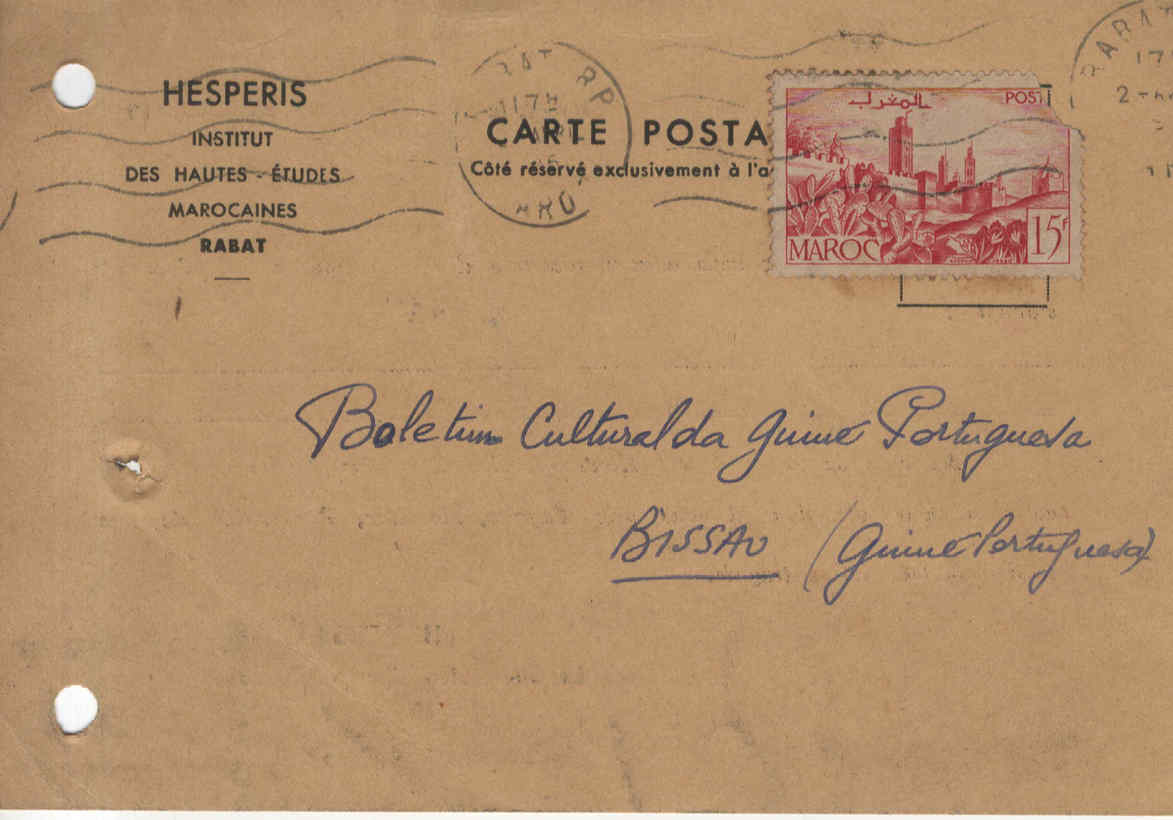 HESPERIS
INSTITUT
DES HAUTES-ÉTUDES
MAROCAINES
RABAT
CARTE POSTA
Côté réservé exclusivement à l'a
RABAT RP
17
المغرب
POST
MAROC
15F
RABAT
17
Boletim Cultural da Guiné Portuguesa
BISSAU (Guiné Portuguesa)